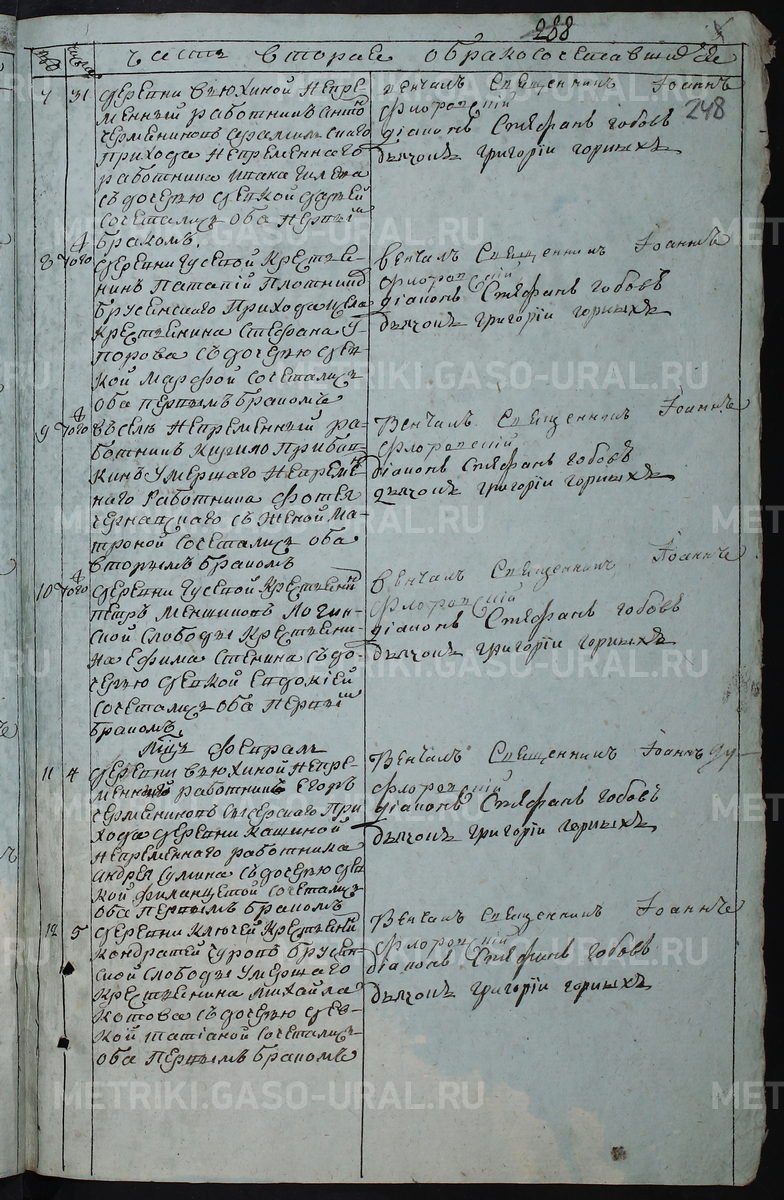 288
248
часть вторая о бракосочетавшихся
7 31 деревни Вьюхиной непре-
менный работникъ Антонъ
Черемниковъ
прихода непременнаго
работника
съ дочерью девкой Дарьей
сочетались оба первымъ
бракомъ.
венчалъ священникъ Iоаннъ
Флоровский
дiаконъ Стефанъ Гобовъ
дьячокъ Григорiи Горныхъ
8 того деревни Гусевой крестья-
нинъ Патапiй Плотниковъ
Брусенскаго прихода села
крестьянина Стефана У
порова съ дочерью дев-
кой Марфой сочетались
оба первымъ бракомъ
венчалъ священникъ Iоаннъ
Флоровский
дiаконъ Стефанъ Гобовъ
дьячокъ Григорiи Горныхъ
9 того въ селе непременный ра-
ботникъ Кирило
умершаго непремен
наго работника Фотея
съ женой Ма-
троной сочетались оба
вторымъ бракомъ
Венчалъ священникъ Iоаннъ
Флоровский
дiаконъ Стефанъ Гобовъ
дьячокъ Григорiи Горныхъ
10 того деревни Гусевой крестьянинъ
Петръ Меншиковъ Логин-
ской слободы крестьяни-
на Ефима Стенина съ до-
черью девкой Евдокiей
сочетались оба первымъ
бракомъ
венчалъ священникъ Iоаннъ
Флоровский
дiаконъ Стефанъ Гобовъ
дьячокъ Григорiи Горныхъ
мцъ февраль
11 4 деревни Вьюхиной непре-
менный работникъ Егоръ
Черемниковъ Сысерскаго при
хода деревни Кашиной
непременнаго работника
Андрея Сумина съ дочерью дев
кой Филанцетой сочетались
оба первымъ бракомъ
Венчалъ священникъ Iоаннъ
Флоровский
дiаконъ Стефанъ Гобовъ
дьячокъ Григорiи Горныхъ
12 5 деревни Ключей крестьянинъ
Кондратей Чуровъ Брусен-
ской слободы умершаго
крестьянина Михайла
Котова съ дочерью дев-
кой Татiаной сочетались
оба первымъ бракомъ
Венчалъ священникъ Iоаннъ
Флоровский
дiаконъ Стефанъ Гобовъ
дьячокъ Григорiи Горныхъ
METRIKI.GASO-URAL.RU